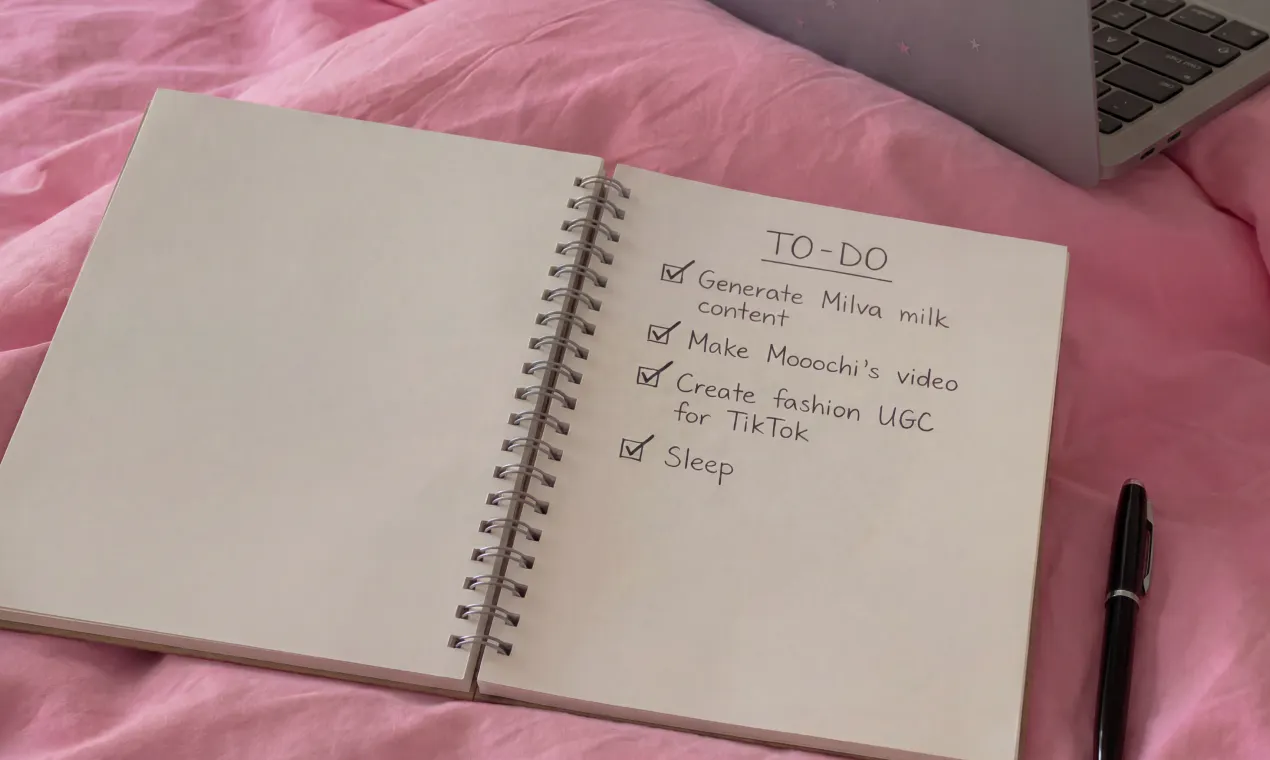 TO-DO
Generate Milva milk
content
Make Mooochi's video
Create fashion UGC
for TikTok
Sleep